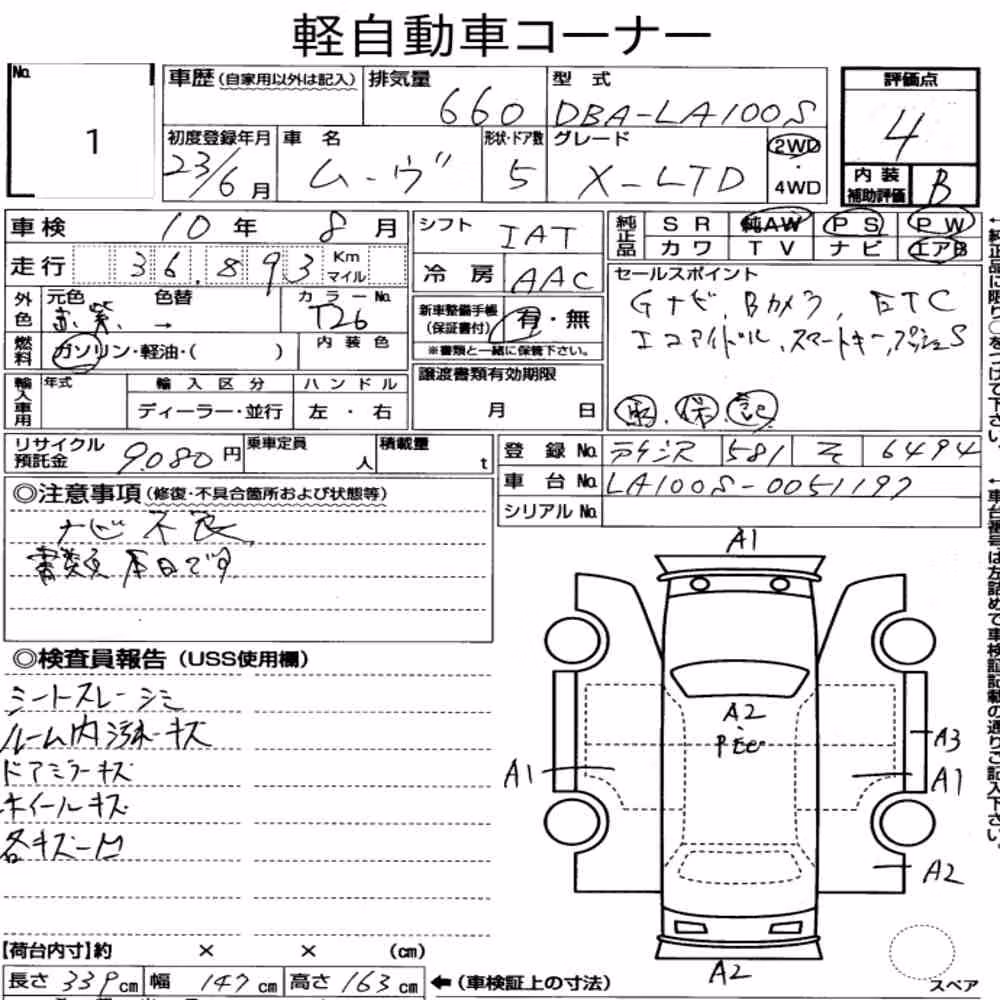 軽自動車コーナー
No. 1
車歴(自家用以外は記入) 排気量 660 型式 DBA-LA100S
評価点 4
初度登録年月 23/6月 車名 ムーヴ 形状・ドア数 5 グレード X-LTD 2WD・4WD
内装補助評価 B
車検 10年 8月 シフト IAT
純正品 SR 純AW PS PW
カワ TV ナビ エアB
走行 36,893 Km マイル 冷房 AAC
セールスポイント
Gナビ, Bカメラ, ETC
エコアイドル, スマートキー, プッシュS
外色 元色 色替 → カラーNo. T26
新車整備手帳(保証書付) 有・無
※書類と一緒に保管下さい。
燃料 ガソリン・軽油・( ) 内装色
輸入車用 年式 輸入区分 ハンドル
ディーラー・並行 左・右
譲渡書類有効期限
月 日
取. 保. 記
リサイクル預託金 9,080円 乗車定員 人 積載量 t
登録No. 581 そ 6494
車台No. LA100S-0051197
シリアルNo.
◎注意事項(修復・不具合箇所および状態等)
ナビ不良
書類 本日です
◎検査員報告(USS使用欄)
シートスレ シミ
ルーム内汚れ キズ
ドアミラーキズ
ホイールキズ
各キズ凹
A1
A2
A3
A1
A1
A2
A2
【荷台内寸】約 × × (cm)
長さ 339cm 幅 147cm 高さ 163cm ←(車検証上の寸法)
スペア
←純正品に限り○をつけて下さい。
←車台番号は左詰めで車検証記載の通りご記入下さい。